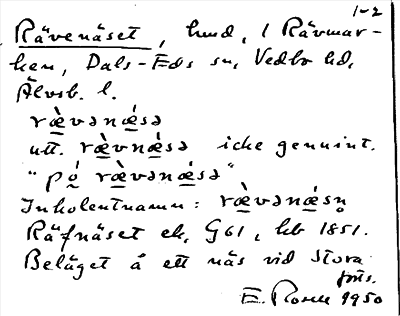 1-2
Rävenäset, hmd, i Rävmar-
ken, Dals-Eds sn, Vedbo hd,
Älvsb. l.
ræ̀vənǽsə
utt. ræ̀vnǽsə icke genuint.
"pǫ́ ræ̀vənǽsə"
Inbolentnamn: ræ̀vənǽsn̥
Räfnäset ek, G61, hb 1851.
Beläget å ett näs vid Stora
E. Rosell 1950